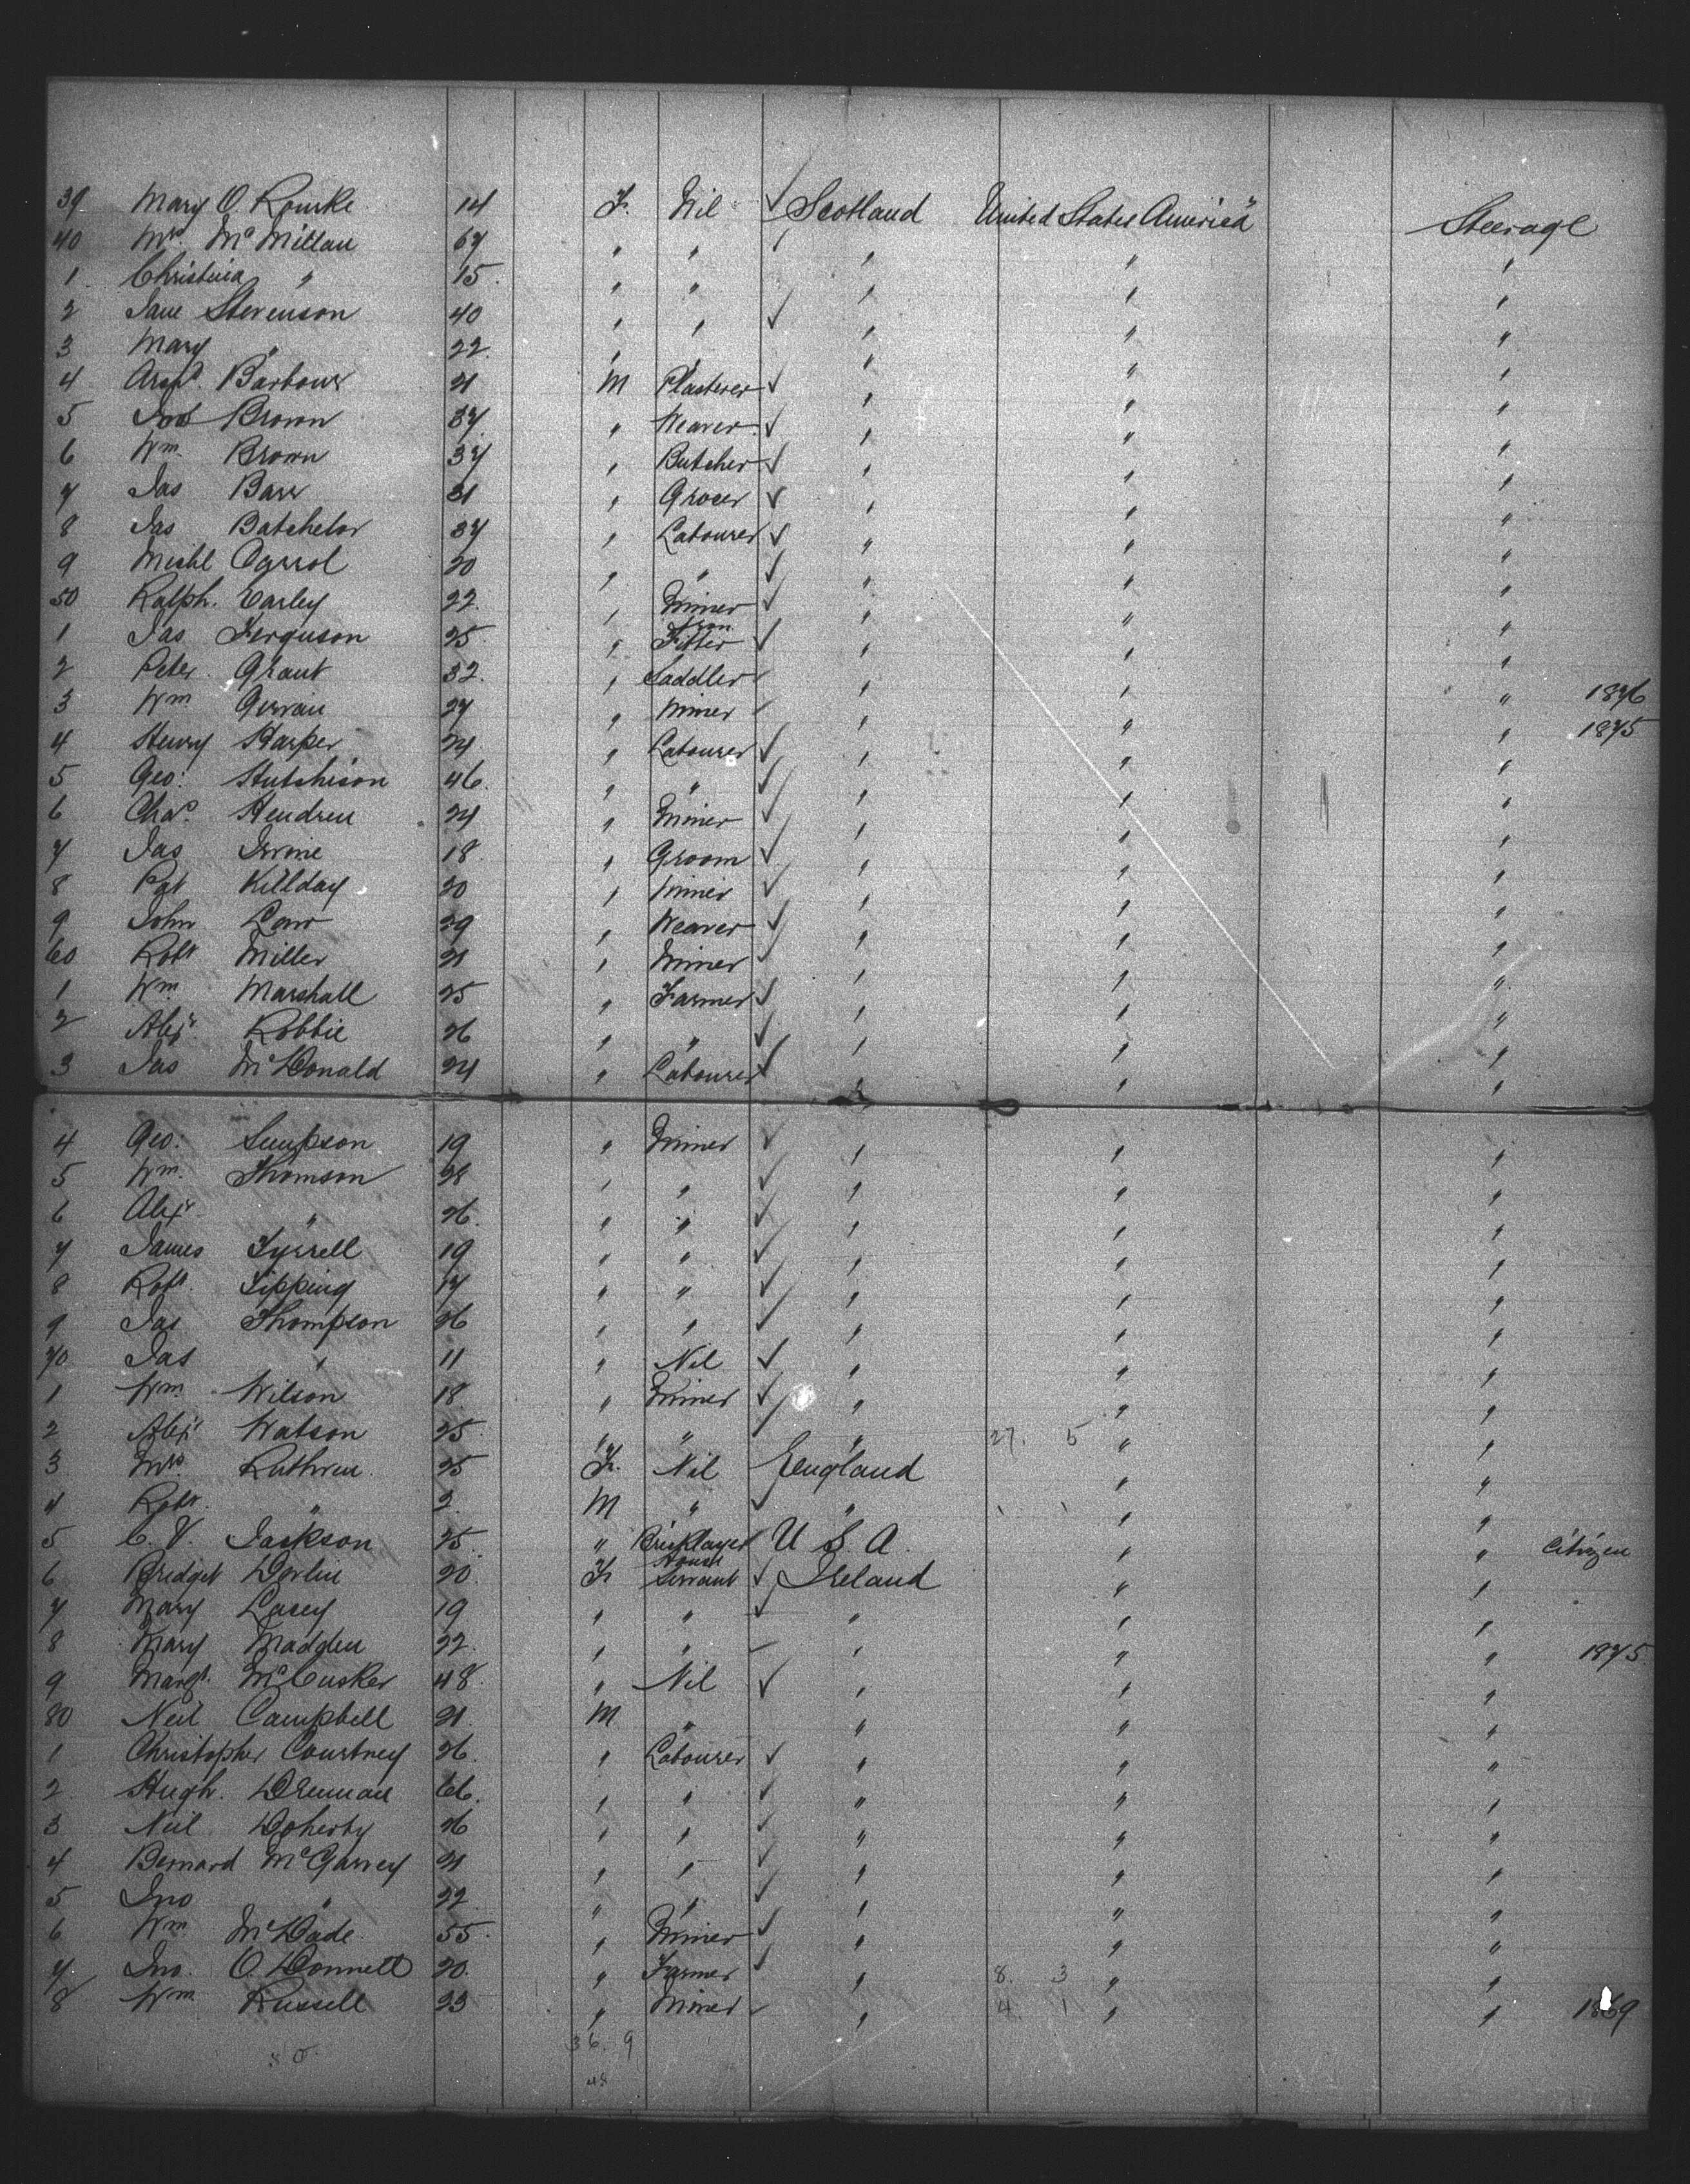 39 Mary O Rourke 14 F. Nil ✓ Scotland United States America Steerage
40 Mrs. McMillan 67 " " " " "
1. Christina " 15. " " " " "
2 Jane Stevenson 40 " " ✓ " " "
3 Mary " 22. " " " "
4 Archd. Barbour 21 M Plasterer ✓ " " "
5 Brown 37 " Weaver ✓ " " "
6 Wm. Brown 37 " Butcher ✓ " " "
7 Jas Barr 31 " Grocer ✓ " " "
8 Jas Batchelor 37 " Labourer ✓ " " "
9 Michl Carrol 20 " " ✓ " " "
50 Ralph. Earley 22. " Miner ✓ " " "
1 Jas Ferguson 25 " Iron Fitter ✓ " " "
2 Peter Grant 32. " Saddler ✓ " " " 1876
3 Wm Girvan 27 " Miner ✓ " " " 1875
4 Henry Harper 24 " Labourer ✓ " " "
5 Geo. Hutchison 46. " " ✓ " " "
6 Chas. Hendren 24 " Miner ✓ " " "
7 Jas Irvine 18. " Groom ✓ " " "
8 Pat Killday 20 " Miner ✓ " " "
9 John Law 29 " Weaver ✓ " " "
60 Robt Miller 21 " Miner ✓ " " "
1 Wm. Marshall 25 " Farmer ✓ " " "
2 Alexr. Robbie 26 " " ✓ " " "
3 Jas McDonald 24 " Labourer ✓ " " "
4 Geo. Simpson 19 " Miner ✓ " " "
5 Wm. Thomson 28 " " ✓ " " "
6 Alexr. " 26. " " ✓ " " "
7 James Tyrrell 19 " " ✓ " " "
8 Robt. Tipping 17 " " ✓ " " "
9 Jas Thompson 26 " " ✓ " " "
70 Jas " 11 " Nil ✓ " " "
1 Wm. Wilson 18. " Miner ✓ " " "
2 Alexr Watson 25. " " " 27. 5 " "
3 Mrs. Ruthven 25 F. Nil England " "
4 Robt. " 2. M " ✓ " " "
5 C. V. Jackson 25. " Bricklayer ✓ U S A. " " Citizen
6 Bridget Devlin 20. F House Servant ✓ Ireland " "
7 Mary Lacey 19 " " ✓ " " "
8 Mary Madden 22. " " " " " 1875
9 Margt. McCusker 48. " Nil ✓ " " "
80 Neil Campbell 21. M " " " "
1 Christopher Courtney 26. " Labourer ✓ " " "
2. Hugh. Drennan 66. " " ✓ " " "
3 Neil Doherty 26 " " ✓ " " "
4 Bernard McGarvey 21 " " ✓ " " "
5 Jno " 22 " " ✓ " " "
6 Wm McDade. 55. " Miner ✓ " " "
7 Jno. O. Donnell 20. " Farmer ✓ " 8. 3 " "
8 Wm. Russell 23 " Miner ✓ " 4. 1 " " 1869
36. 9
48